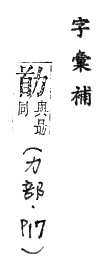 字彙補
與勗同
(力部・P17)